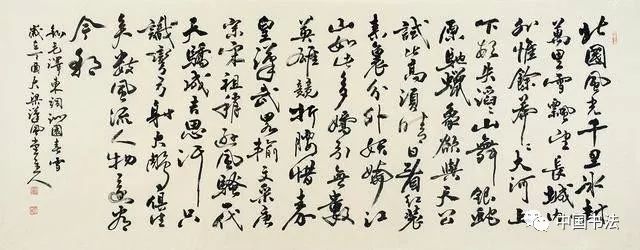 北國風光千里冰封
萬里雪飄望長城內
外惟餘莽莽大河上
下頓失滔滔山舞銀蛇
原馳蠟象欲與天公
試比高須晴日看紅裝
素裹分外妖嬈江
山如此多嬌引無數
英雄競折腰惜秦
皇漢武略輸文采唐
宗宋祖稍遜風騷一代
天驕成吉思汗只
識彎弓射大雕俱往
矣數風流人物還看
今朝
毛澤東詞沁園春雪
大梁 風堂主人
中国书法